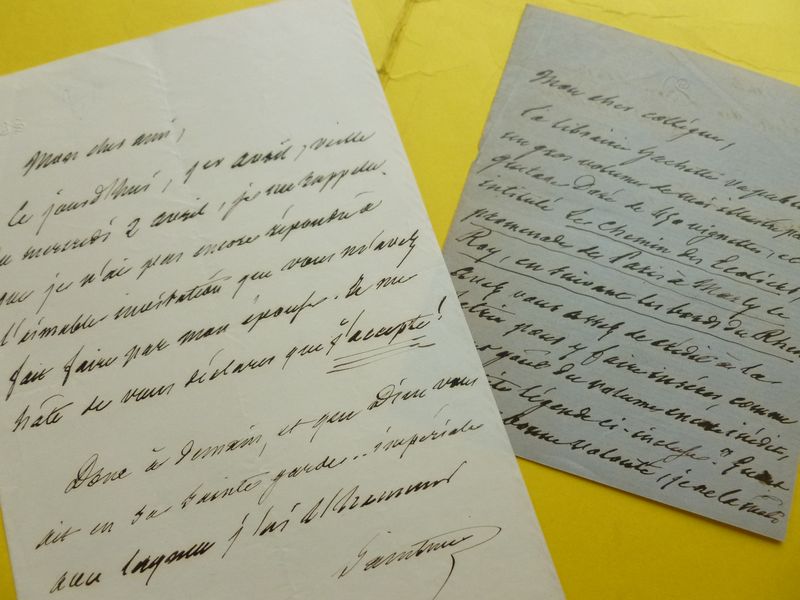 Mon cher ami,
Ce jourd'hui, 1er avril, veille
du mercredi 2 avril, je me rappelle
que je n'ai pas encore répondre à
l'aimable invitation que vous m'avez
fait faire par mon épouse. Je me
hâte de vous déclarer que j'accepte!
Donc à demain, et que Dieu vous
ait en sa sainte garde impériale
avec laquelle j'ai l'honneur
Saintine
Mon cher collègue,
La librairie Hachette
un gros volume de moi illustré par
Gustave Doré de 450 vignettes, et
intitulé Le Chemin des Ecoliers,
promenade de Paris à Marly le
Roy, en suivant les bords du Rhin
avez vous assez de crédit à la
pour y faire insérer, comme
du volume encore inédit,
légende ci-incluse.
bonne volonté, je ne la mets